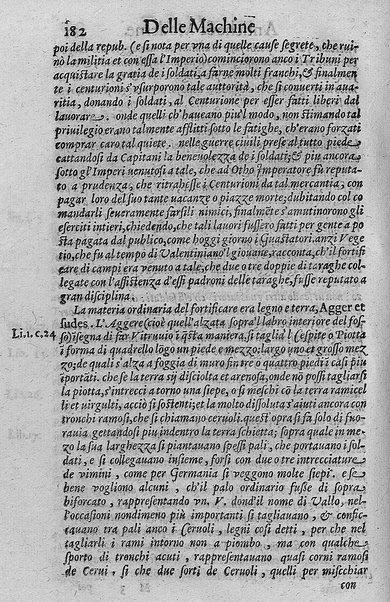 182 Delle Machine
poi della repub. (e si nota per vna di quelle cause segrete, che rui-
nò la militia et con essa l'Imperio) cominciorono anco i Tribuni per
acquistare la gratia de i soldati, a farne molti franchi, & finalmen
te i centurioni s'vsurporono tale auttorità, che si conuerti in aua-
ritia, donando i soldati, al Centurione per esser fatti liberi dal
lauorare. onde quelli ch'haueano piu'l modo, non stimando tal
priuilegio erano talmente afflitti sotto le fatighe, ch'erano forzati
comprar caro tal quiete. nelle guerre ciuili prese al tutto piede
cattandosi da Capitani la beneuolezza de i soldati; & piu ancora
sotto gl'Imperi venuti a tale, che ad Otho Imperatore fu reputa-
to a prudenza, che ritrahesse i Centurioni da tal mercantia, con
pagar loro del suo tante vacanze o piazze morte; dubitando col co
mandarli seueramente farsili nimici, finalmēte s'amutinorono gli
eserciti intieri, chiedendo, che tali lauori fussero fatti per gente a po
sta pagata dal publico, come hoggi giorno i Guastatori. anzi Vege
tio, che fu al tempo di Valentiniano'l giouane, racconta, ch'il fortifi
care di campi era venuto a tale, che due o tre doppie di taraghe col-
legate con l'assistenza d'essi padroni delle taraghe, fusse reputato a
gran disciplina.
La materia ordinaria del fortificare era legno e terra, Agger et
Li.1.c.24 sudes. L'Aggere (cioè quell'alzata sopra'l labro interiore del fos-
so) isegna di far Vitruuio i q̄sta maniera, si taglia'l cespite o Piotta
i forma di quadrello lōgo un piede e mezzo: largo uno et grosso mez
zo; de quali s'alza a foggia di muro fin tre o quattro piedi i casi piu
iportāti. che se la terra sij disciolta et arenosa, onde nō possi tagliarsi
la piotta, s'intrecci a torno una siepe, o si meschi cō la terra ramicel
li et virgulti, acciò si sostenti; et la molto dissoluta s'aiuti ancora con
tronchi ramosi, che si chiamano ceruoli. quest'opra si fa solo di fuo-
rauia gettandosi piu indentro la terra schietta; sopra quale in mez-
zo la sua larghezza si piantauano spessi pali, che portauano i sol-
dati, e si collegauano insieme, forsi con due o tre intrecciature
de vimini, come per Germania si veggono molte siepi. e se
bene vogliono alcuni, ch'il palo ordinario fusse di sopra
biforcato, rappresentando vn. V. dond'il nome di Vallo, nel-
l'occasioni nondimeno più importanti si tagliauano, & confic-
cauano tra pali anco i Ceruoli, legni cosi detti, per che nel
tagliarli i rami intorno non a piombo, ma con qualche
sporto di tronchi acuti, rappresentauano quasi corni ramosi
de Cerui, si che due sorti de Ceruoli, quelli per mischiar
con